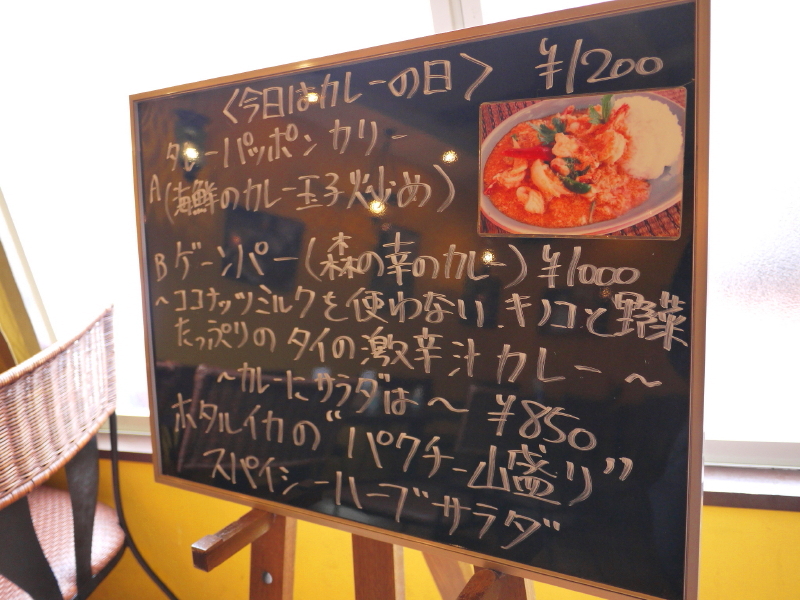 〈今日はカレーの日〉 ¥1200
タレーパッポンカリー
A(海鮮のカレー玉子炒め)
Bゲーンパー(森の幸のカレー)¥1000
〜ココナッツミルクを使わない、キノコと野菜
たっぷりのタイの激辛汁カレー〜
〜カレーにサラダは〜 ¥850
ホタルイカの“パクチー山盛り”
スパイシーハーブサラダ